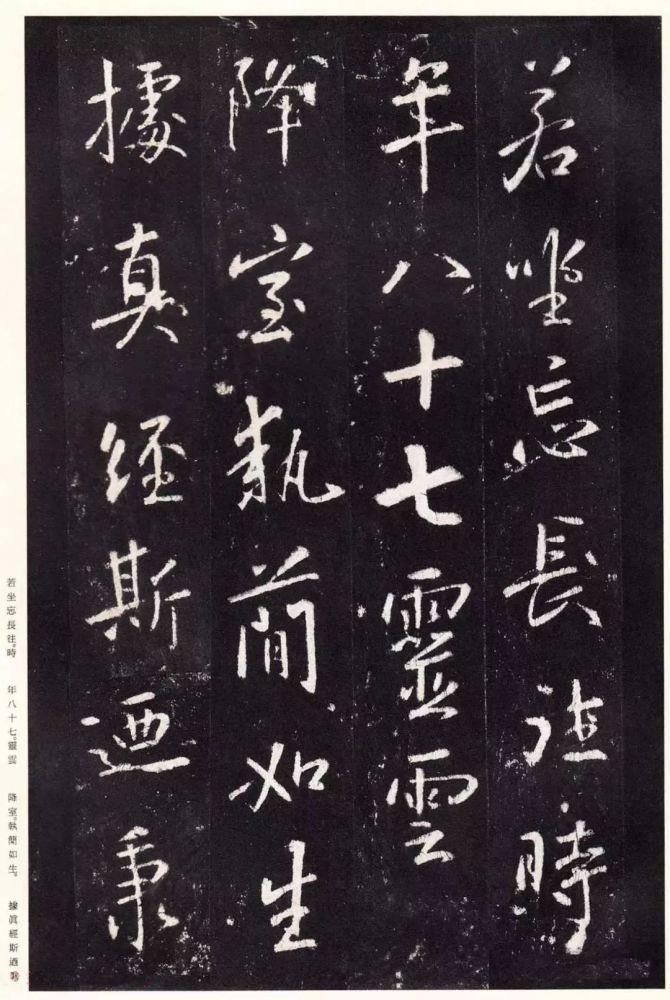 若坐忘長往時
年八十七靈雲
降室執蕳如生
據真經斯迺秉
若坐忘長往。時 年八十七。靈雲 降室。執簡如生。 據眞經斯迺